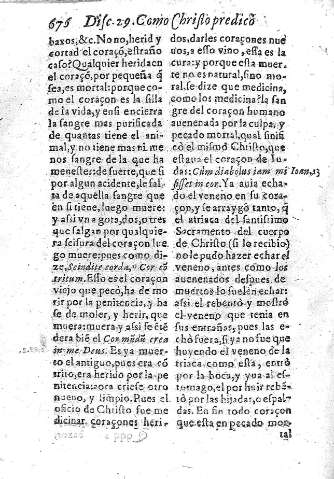 676 Disc. 29. Como Christo predicó
baxos, &c. No no, herid y
cortad el coraçõ, estraño
caso? Qualquier herida en
el coraçõ, por pequeña q̃
sea, es mortal: porque co-
mo el coraçon es la silla
de la vida, y en si encierra
la sangre mas purificada
de quantas tiene el ani-
mal, y no tiene mas ni me
nos sangre de la que ha
menester: de suerte, que si
por algun accidente, le sal-
ta de aquella sangre que
en si tiene, luego muere:
y assi vna gota, dos, o tres
que salgan por qualquie-
ra scisura del coraçon lue
go muere: pues como di-
ze, Scindite corda, y Cor cõ
tritum. Esso es el coraçon
viejo que pecó, ha de mo
rir por la penitencia, y ha
se de moler, y herir, que
muera: muera y assi se ẽtẽ
dera biẽ el Cor mũdũ crea
in me Deus. Es ya muer-
to el antiguo, pues era cõ
trito, era herido por la pe
nitencia: aora criese otro
nueuo, y limpio. Pues el
oficio de Christo fue me
dicinar coraçones heri-
dos, darles coraçones nue
uos, a esso vino, essa es la
cura: y porque esta muer
te no es natural, sino mo-
ral. se dize que medicina,
como los medicina? la san
gre del coraçon humano
auenenada por la culpa, y
pecado mortal, qual sinifi
có el mismo Christo, que
estaua el coraçon de Iu-
das: Cũm diabolus iam mi
sisset in cor. Ya auia echa-
do el veneno en su cora-
çon, y se arraygó tanto, q̃
el atriaca del santissimo
Sacramento del cuerpo
de Christo (si lo recibio)
no le pudo hazer echar el
veneno, antes como los
auenenados despues de
muertos lo suelẽ echar:
assi el rebentó y mostró
el veneno que tenia en
sus entrañas, pues las e-
chó fuera, si ya no fue que
huyendo el veneno de la
triaca como esta, entró
por la boca, y yua al es-
tomago, el por huir rebẽ-
tó por las hijadas, o espal-
das. En fin todo coraçon
que esta en pecado mor-
tal
Ioan. 13